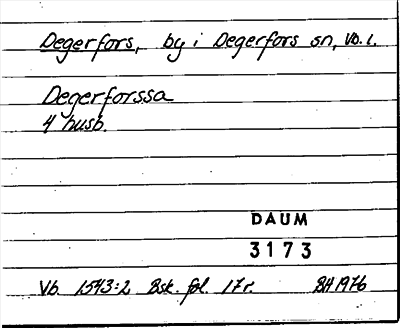 Degerfors, by i Degerfors sn, Vb. l.
Degerforssa
4 husb.
DAUM
3173
Vb 1543:2 Bsk. fol. 17r. BH 1976